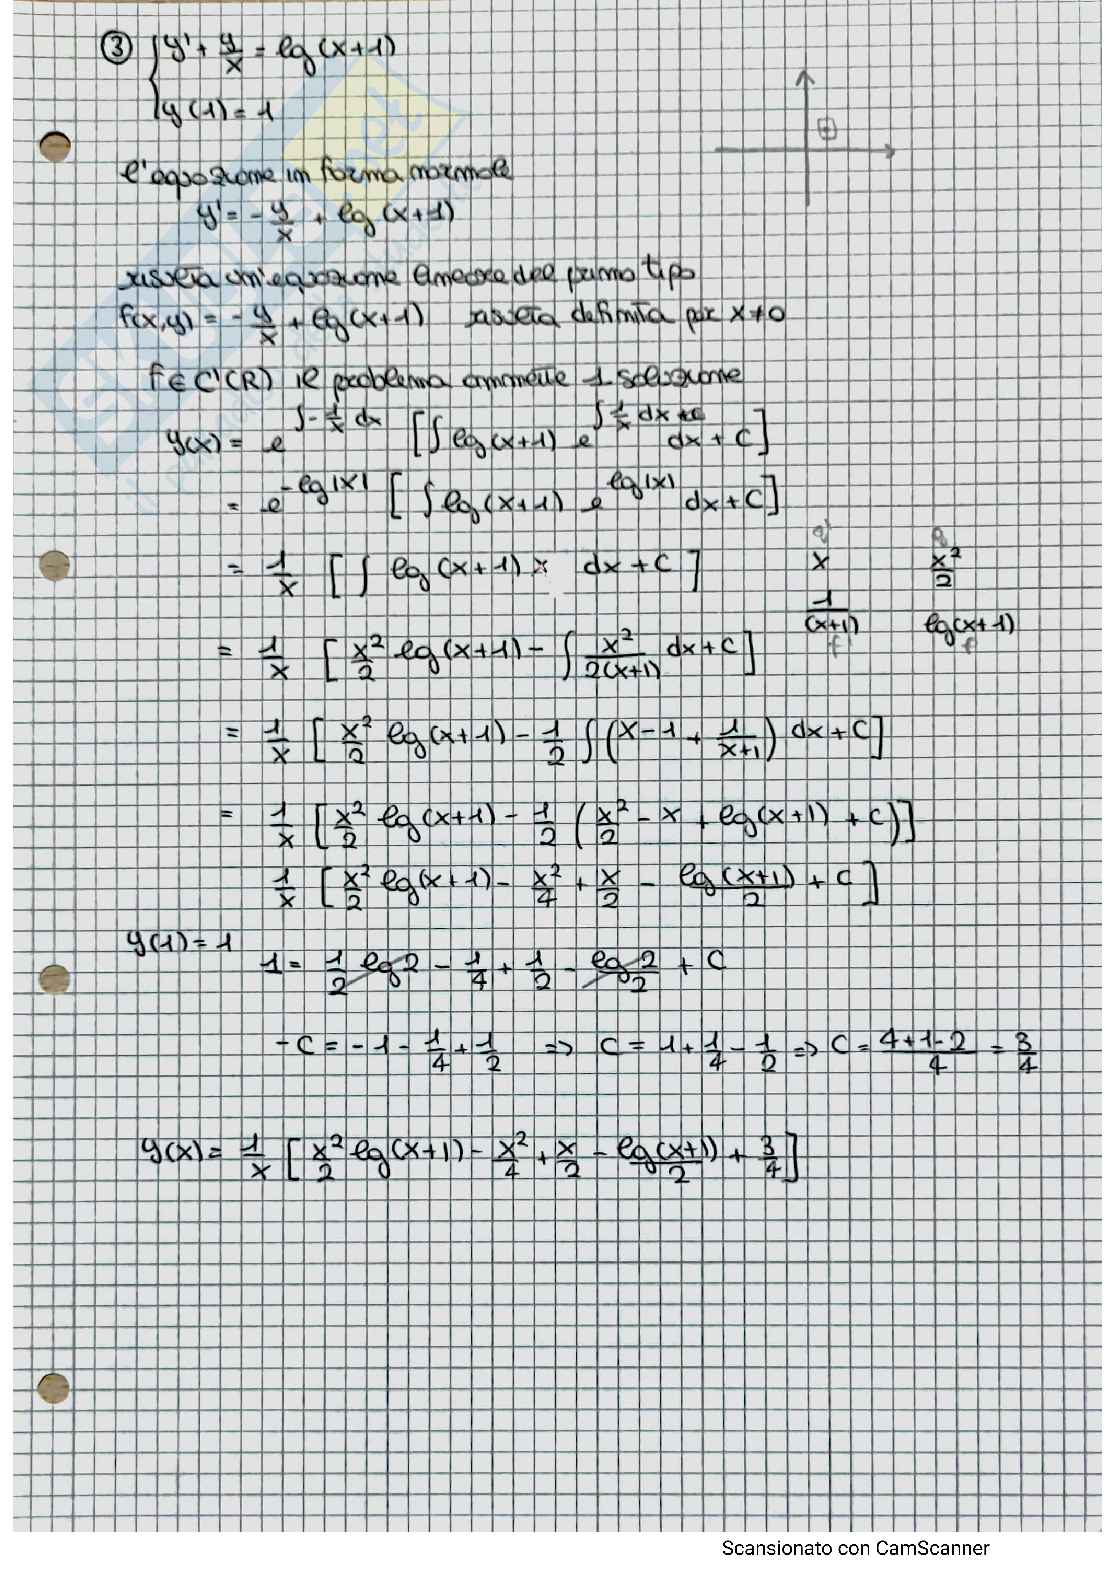 ③ { y' + y/x = lg(x+1)
y(1) = 1
l'equazione in forma normale
y' = - y/x + lg(x+1)
risulta un'equazione lineare del primo tipo
f(x,y) = - y/x + lg(x+1) risulta definita per x≠0
f ∈ C'(R) il problema ammette 1 soluzione
y(x) = e^(∫-1/x dx) [∫ lg(x+1) e^(∫1/x dx+c) dx + C]
= e^(-lg|x|) [∫ lg(x+1) e^(lg|x|) dx + C]
= 1/x [∫ lg(x+1) x dx + C]
g' g
x x²/2
1/(x+1) lg(x+1)
f' f
= 1/x [x²/2 lg(x+1) - ∫ x²/2(x+1) dx + C]
= 1/x [x²/2 lg(x+1) - 1/2 ∫(x - 1 + 1/x+1) dx + C]
= 1/x [x²/2 lg(x+1) - 1/2 (x²/2 - x + lg(x+1) + C)]
1/x [x²/2 lg(x+1) - x²/4 + x/2 - lg(x+1)/2 + C]
y(1) = 1
1 = 1/2 lg2 - 1/4 + 1/2 - lg2/2 + C
-C = -1 - 1/4 + 1/2 => C = 1 + 1/4 - 1/2 => C = 4+1-2/4 = 3/4
y(x) = 1/x [x²/2 lg(x+1) - x²/4 + x/2 - lg(x+1)/2 + 3/4]
Scansionato con CamScanner